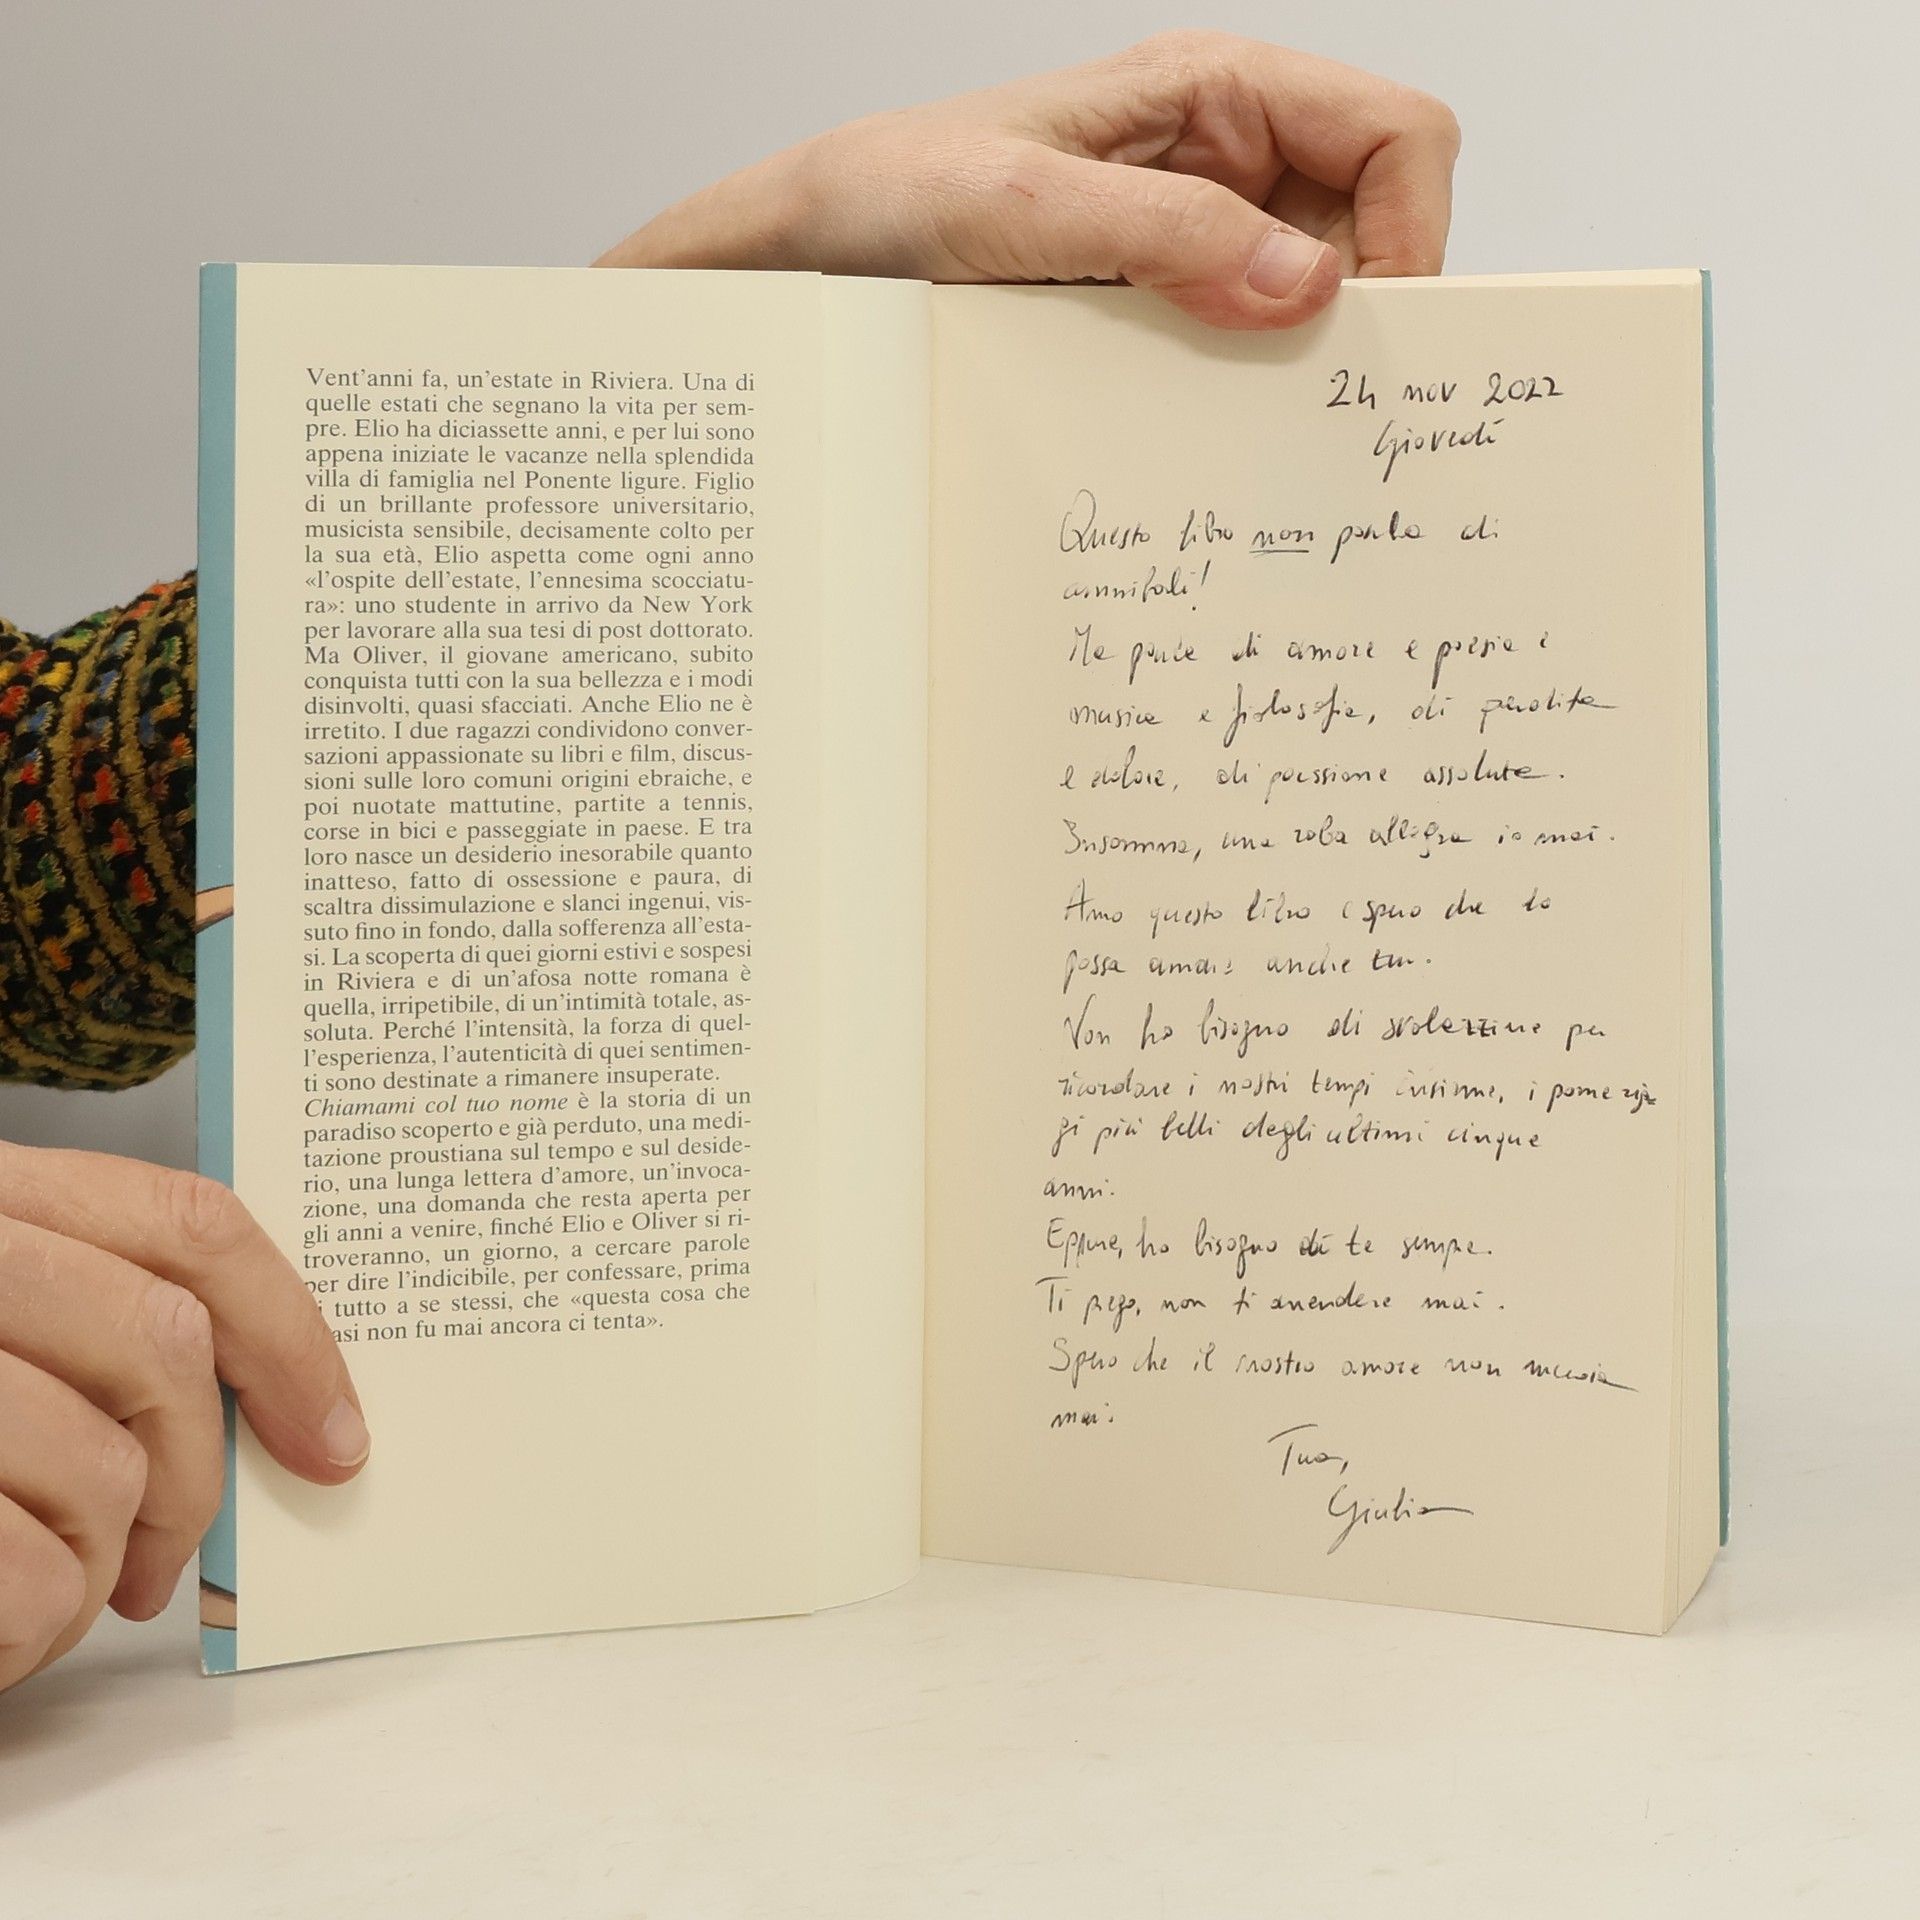 Vent'anni fa, un'estate in Riviera. Una di
quelle estati che segnano la vita per sem-
pre. Elio ha diciassette anni, e per lui sono
appena iniziate le vacanze nella splendida
villa di famiglia nel Ponente ligure. Figlio
di un brillante professore universitario,
musicista sensibile, decisamente colto per
la sua età, Elio aspetta come ogni anno
«l'ospite dell'estate, l'ennesima scocciatu-
ra»: uno studente in arrivo da New York
per lavorare alla sua tesi di post dottorato.
Ma Oliver, il giovane americano, subito
conquista tutti con la sua bellezza e i modi
disinvolti, quasi sfacciati. Anche Elio ne è
irretito. I due ragazzi condividono conver-
sazioni appassionate su libri e film, discus-
sioni sulle loro comuni origini ebraiche, e
poi nuotate mattutine, partite a tennis,
corse in bici e passeggiate in paese. E tra
loro nasce un desiderio inesorabile quanto
inatteso, fatto di ossessione e paura, di
scaltra dissimulazione e slanci ingenui, vis-
suto fino in fondo, dalla sofferenza all'esta-
si. La scoperta di quei giorni estivi e sospesi
in Riviera e di un'afosa notte romana è
quella, irripetibile, di un'intimità totale, as-
soluta. Perché l'intensità, la forza di quel-
l'esperienza, l'autenticità di quei sentimen-
ti sono destinate a rimanere insuperate.
Chiamami col tuo nome è la storia di un
paradiso scoperto e già perduto, una medi-
tazione proustiana sul tempo e sul deside-
rio, una lunga lettera d'amore, un'invoca-
zione, una domanda che resta aperta per
gli anni a venire, finché Elio e Oliver si ri-
troveranno, un giorno, a cercare parole
per dire l'indicibile, per confessare, prima
tutto a se stessi, che «questa cosa che
asi non fu mai ancora ci tenta».
24 nov 2022
Giovedì
Questo libro non parla di
annibali!
Ma parla di amore e poesia e
musica e filosofia, di perdita
e dolore, di passione assoluta.
Insomma, una roba allegra mai.
Amo questo libro e spero che lo
possa amare anche tu.
Non ho bisogno di per
ricordare i nostri tempi insieme, i pomerig-
gi più belli degli ultimi cinque
anni.
Eppure, ho bisogno di te sempre.
Ti prego, non ti arrendere mai.
Spero che il nostro amore non muoia
mai.
Tua,
Giulia